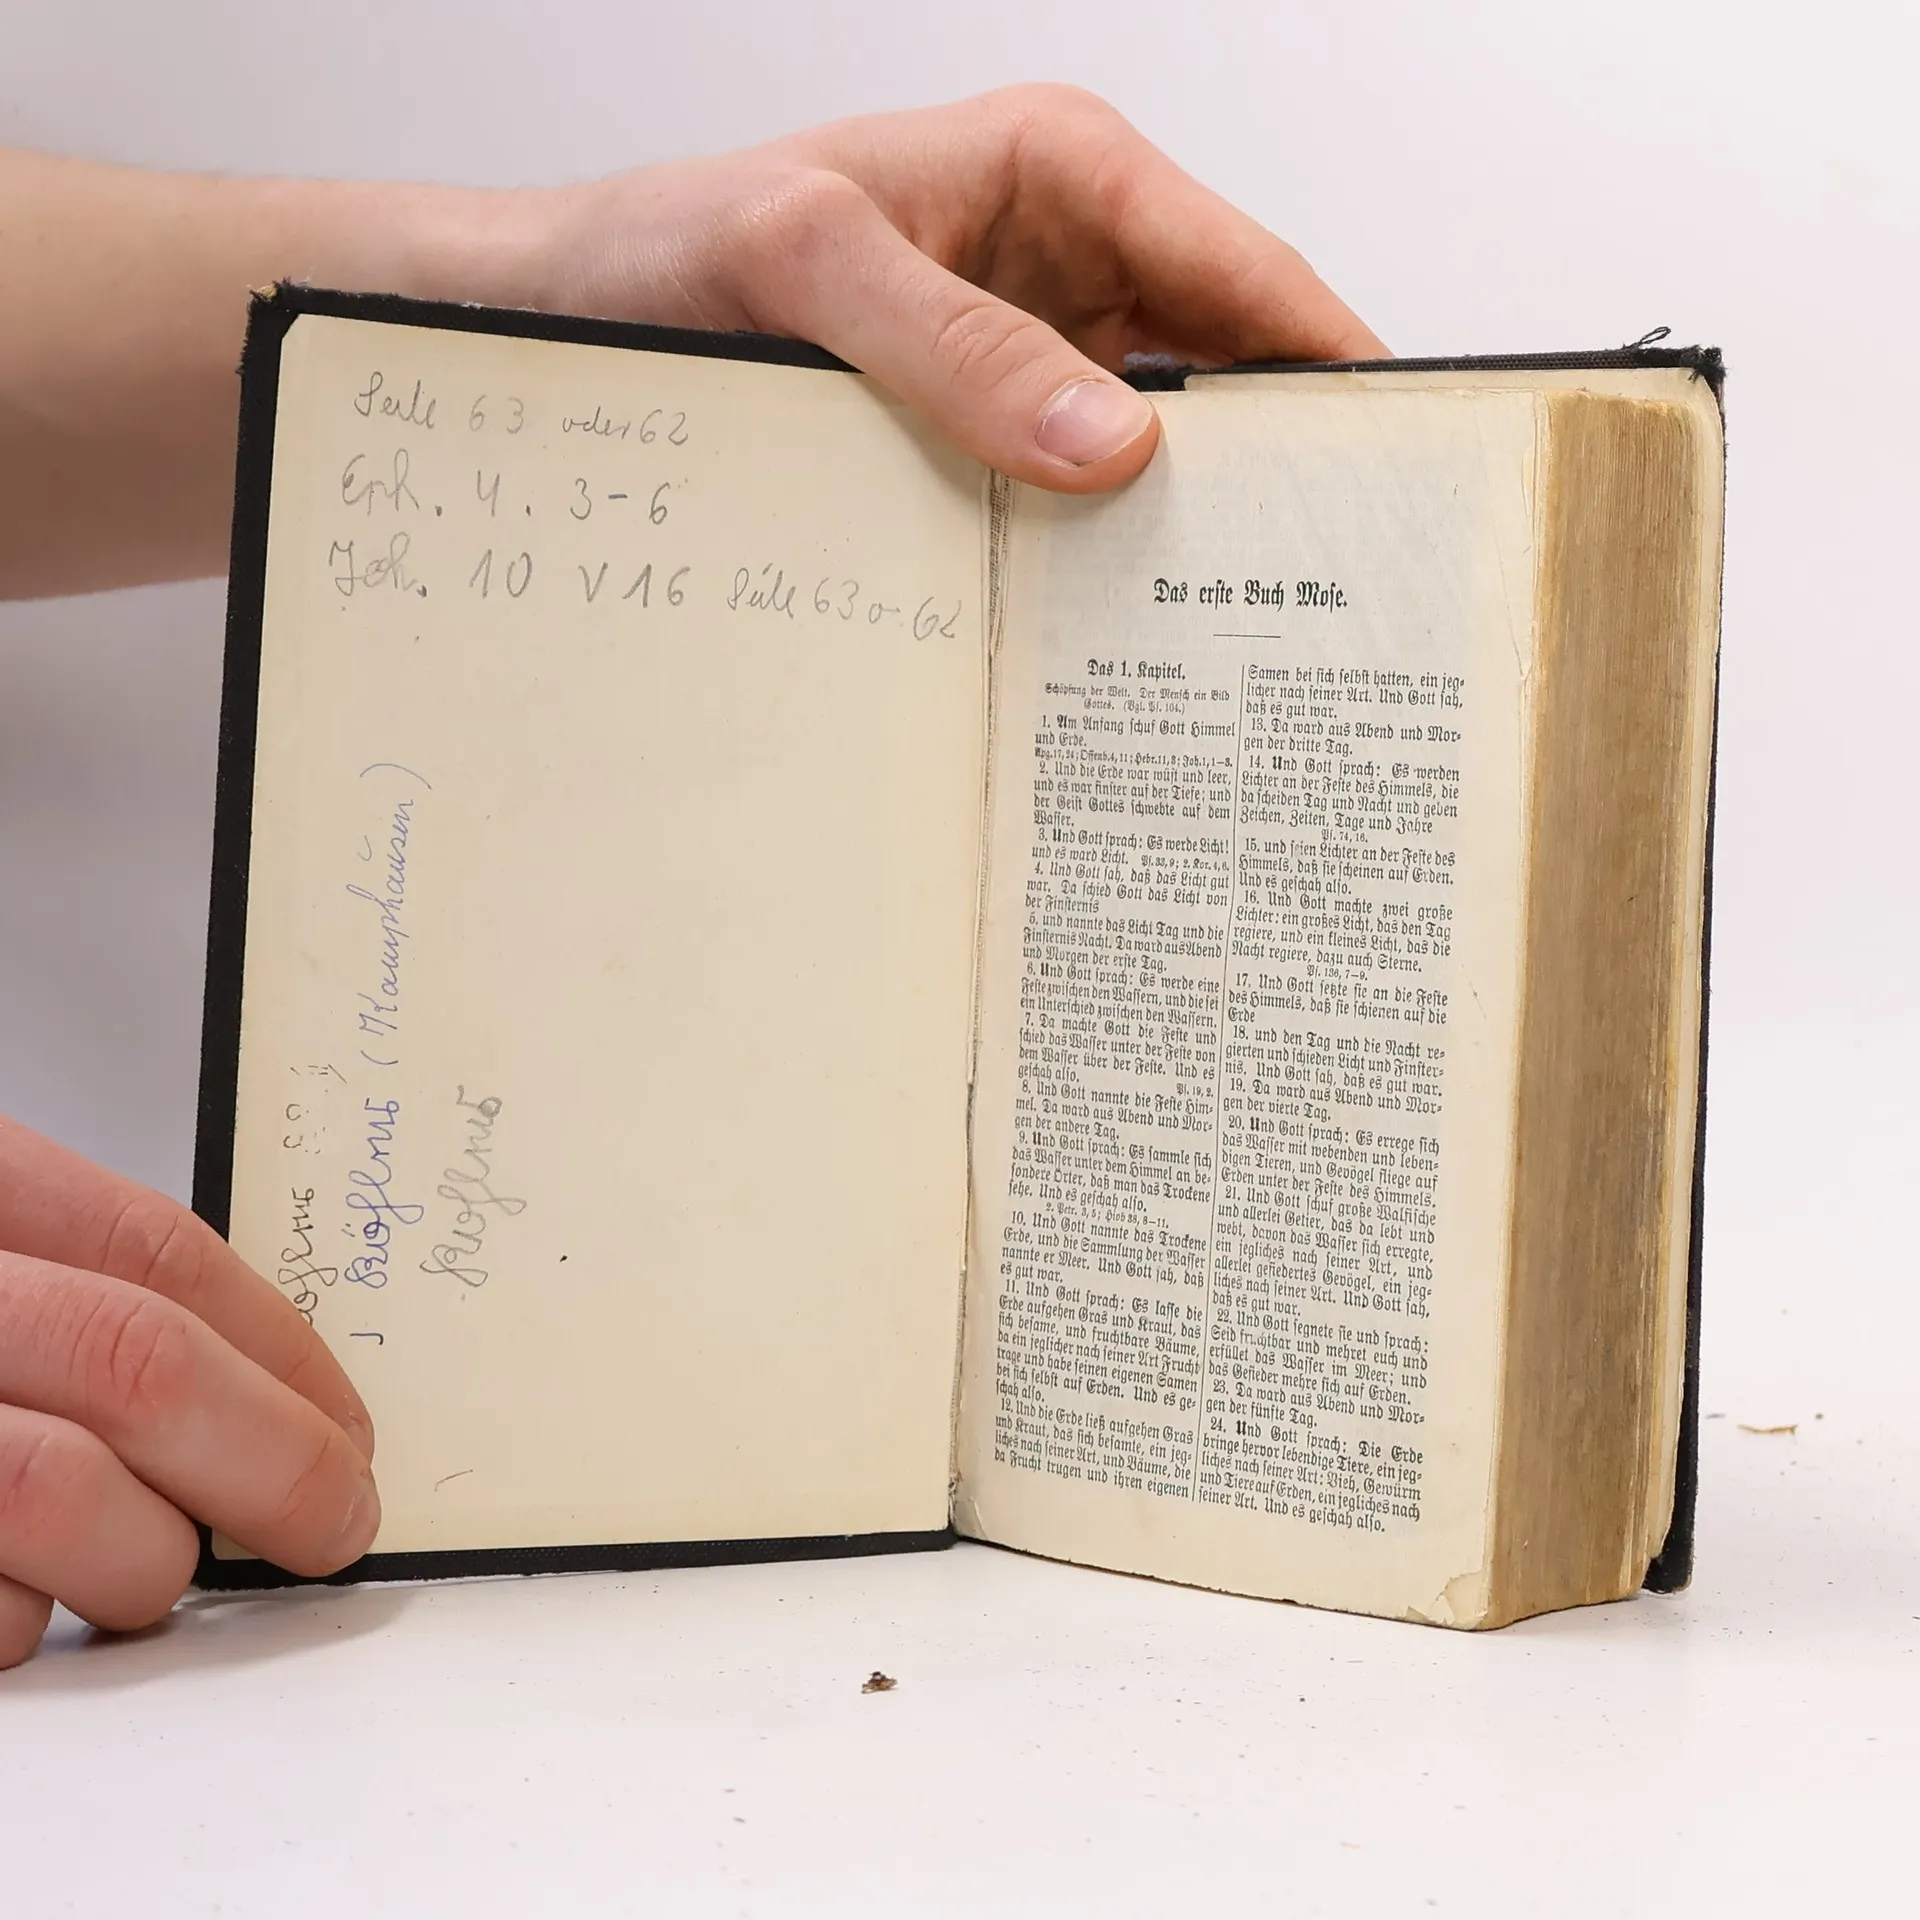 Seite 63 oder 62
Eph. 4. 3-6
Joh. 10 V 16 Seite 63 o. 62
(Kamphausen)
Das erste Buch Mose.
Das 1. Kapitel.
Schöpfung der Welt. Der Mensch ein Bild
Gottes. (Vgl. Ps. 104.)
1. Am Anfang schuf Gott Himmel
und Erde.
Apg. 17, 24; Offenb. 4, 11; Hebr. 11, 3; Joh. 1, 1–3.
2. Und die Erde war wüst und leer,
und es war finster auf der Tiefe; und
der Geist Gottes schwebte auf dem
Wasser.
3. Und Gott sprach: Es werde Licht!
und es ward Licht. Ps. 33, 9; 2. Kor. 4, 6.
4. Und Gott sah, daß das Licht gut
war. Da schied Gott das Licht von
der Finsternis
5. und nannte das Licht Tag und die
Finsternis Nacht. Da ward aus Abend
und Morgen der erste Tag.
6. Und Gott sprach: Es werde eine
Feste zwischen den Wassern, und die sei
ein Unterschied zwischen den Wassern.
7. Da machte Gott die Feste und
schied das Wasser unter der Feste von
dem Wasser über der Feste. Und es
geschah also. Ps. 19, 2.
8. Und Gott nannte die Feste Him-
mel. Da ward aus Abend und Mor-
gen der andere Tag.
9. Und Gott sprach: Es sammle sich
das Wasser unter dem Himmel an be-
sondere Örter, daß man das Trockene
sehe. Und es geschah also.
2. Petr. 3, 5; Hiob 38, 8–11.
10. Und Gott nannte das Trockene
Erde, und die Sammlung der Wasser
nannte er Meer. Und Gott sah, daß
es gut war.
11. Und Gott sprach: Es lasse die
Erde aufgehen Gras und Kraut, das
sich besame, und fruchtbare Bäume,
da ein jeglicher nach seiner Art Frucht
trage und habe seinen eigenen Samen
bei sich selbst auf Erden. Und es ge-
schah also.
12. Und die Erde ließ aufgehen Gras
und Kraut, das sich besamte, ein jeg-
liches nach seiner Art, und Bäume, die
da Frucht trugen und ihren eigenen
Samen bei sich selbst hatten, ein jeg-
licher nach seiner Art. Und Gott sah,
daß es gut war.
13. Da ward aus Abend und Mor-
gen der dritte Tag.
14. Und Gott sprach: Es werden
Lichter an der Feste des Himmels, die
da scheiden Tag und Nacht und geben
Zeichen, Zeiten, Tage und Jahre
Ps. 74, 16.
15. und seien Lichter an der Feste des
Himmels, daß sie scheinen auf Erden.
Und es geschah also.
16. Und Gott machte zwei große
Lichter: ein großes Licht, das den Tag
regiere, und ein kleines Licht, das die
Nacht regiere, dazu auch Sterne.
Ps. 136, 7–9.
17. Und Gott setzte sie an die Feste
des Himmels, daß sie schienen auf die
Erde
18. und den Tag und die Nacht re-
gierten und schieden Licht und Finster-
nis. Und Gott sah, daß es gut war.
19. Da ward aus Abend und Mor-
gen der vierte Tag.
20. Und Gott sprach: Es errege sich
das Wasser mit webenden und leben-
digen Tieren, und Gevögel fliege auf
Erden unter der Feste des Himmels.
21. Und Gott schuf große Walfische
und allerlei Getier, das da lebt und
webt, davon das Wasser sich erregte,
ein jegliches nach seiner Art, und
allerlei gefiedertes Gevögel, ein jeg-
liches nach seiner Art. Und Gott sah,
daß es gut war.
22. Und Gott segnete sie und sprach:
Seid fruchtbar und mehret euch und
erfüllet das Wasser im Meer; und
das Gefieder mehre sich auf Erden.
23. Da ward aus Abend und Mor-
gen der fünfte Tag.
24. Und Gott sprach: Die Erde
bringe hervor lebendige Tiere, ein jeg-
liches nach seiner Art: Vieh, Gewürm
und Tiere auf Erden, ein jegliches nach
seiner Art. Und es geschah also.